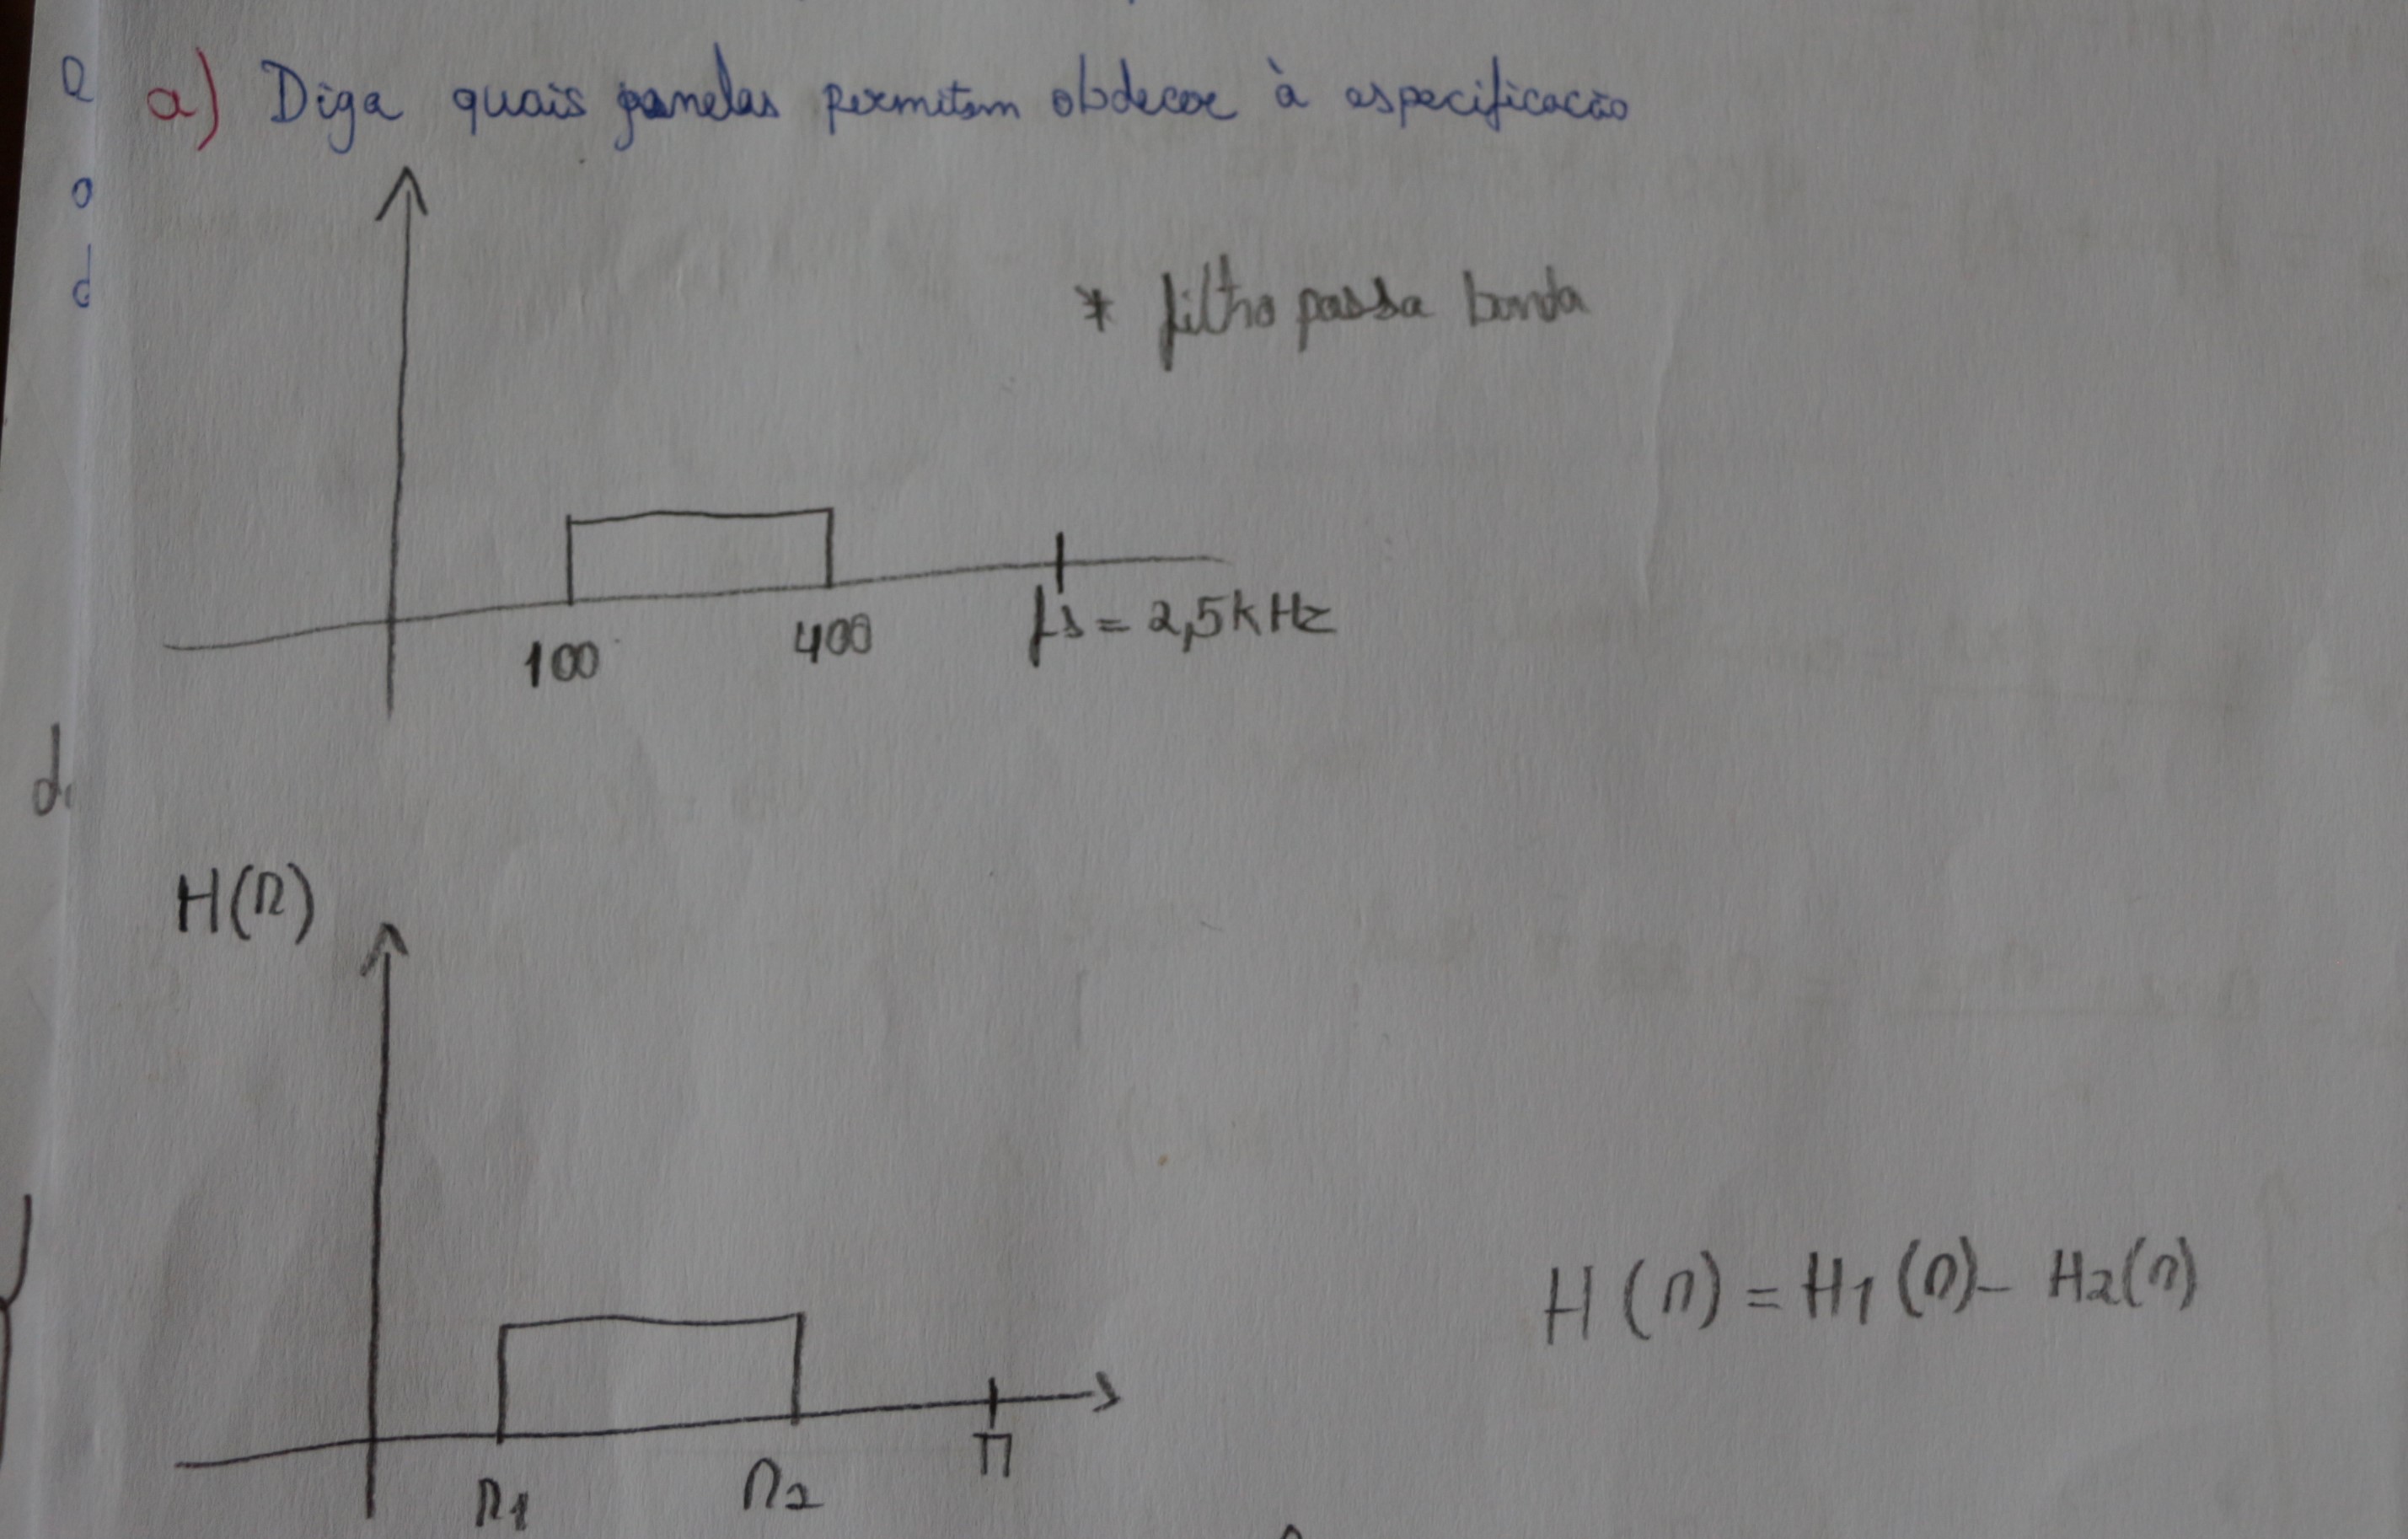 a) Diga quais janelas permitem obdecer à especificação
* filtro passa banda
100
400
fs = 2,5kHz
H(Ω)
H(Ω) = H1(Ω) - H2(Ω)
Ω1
Ω2
π